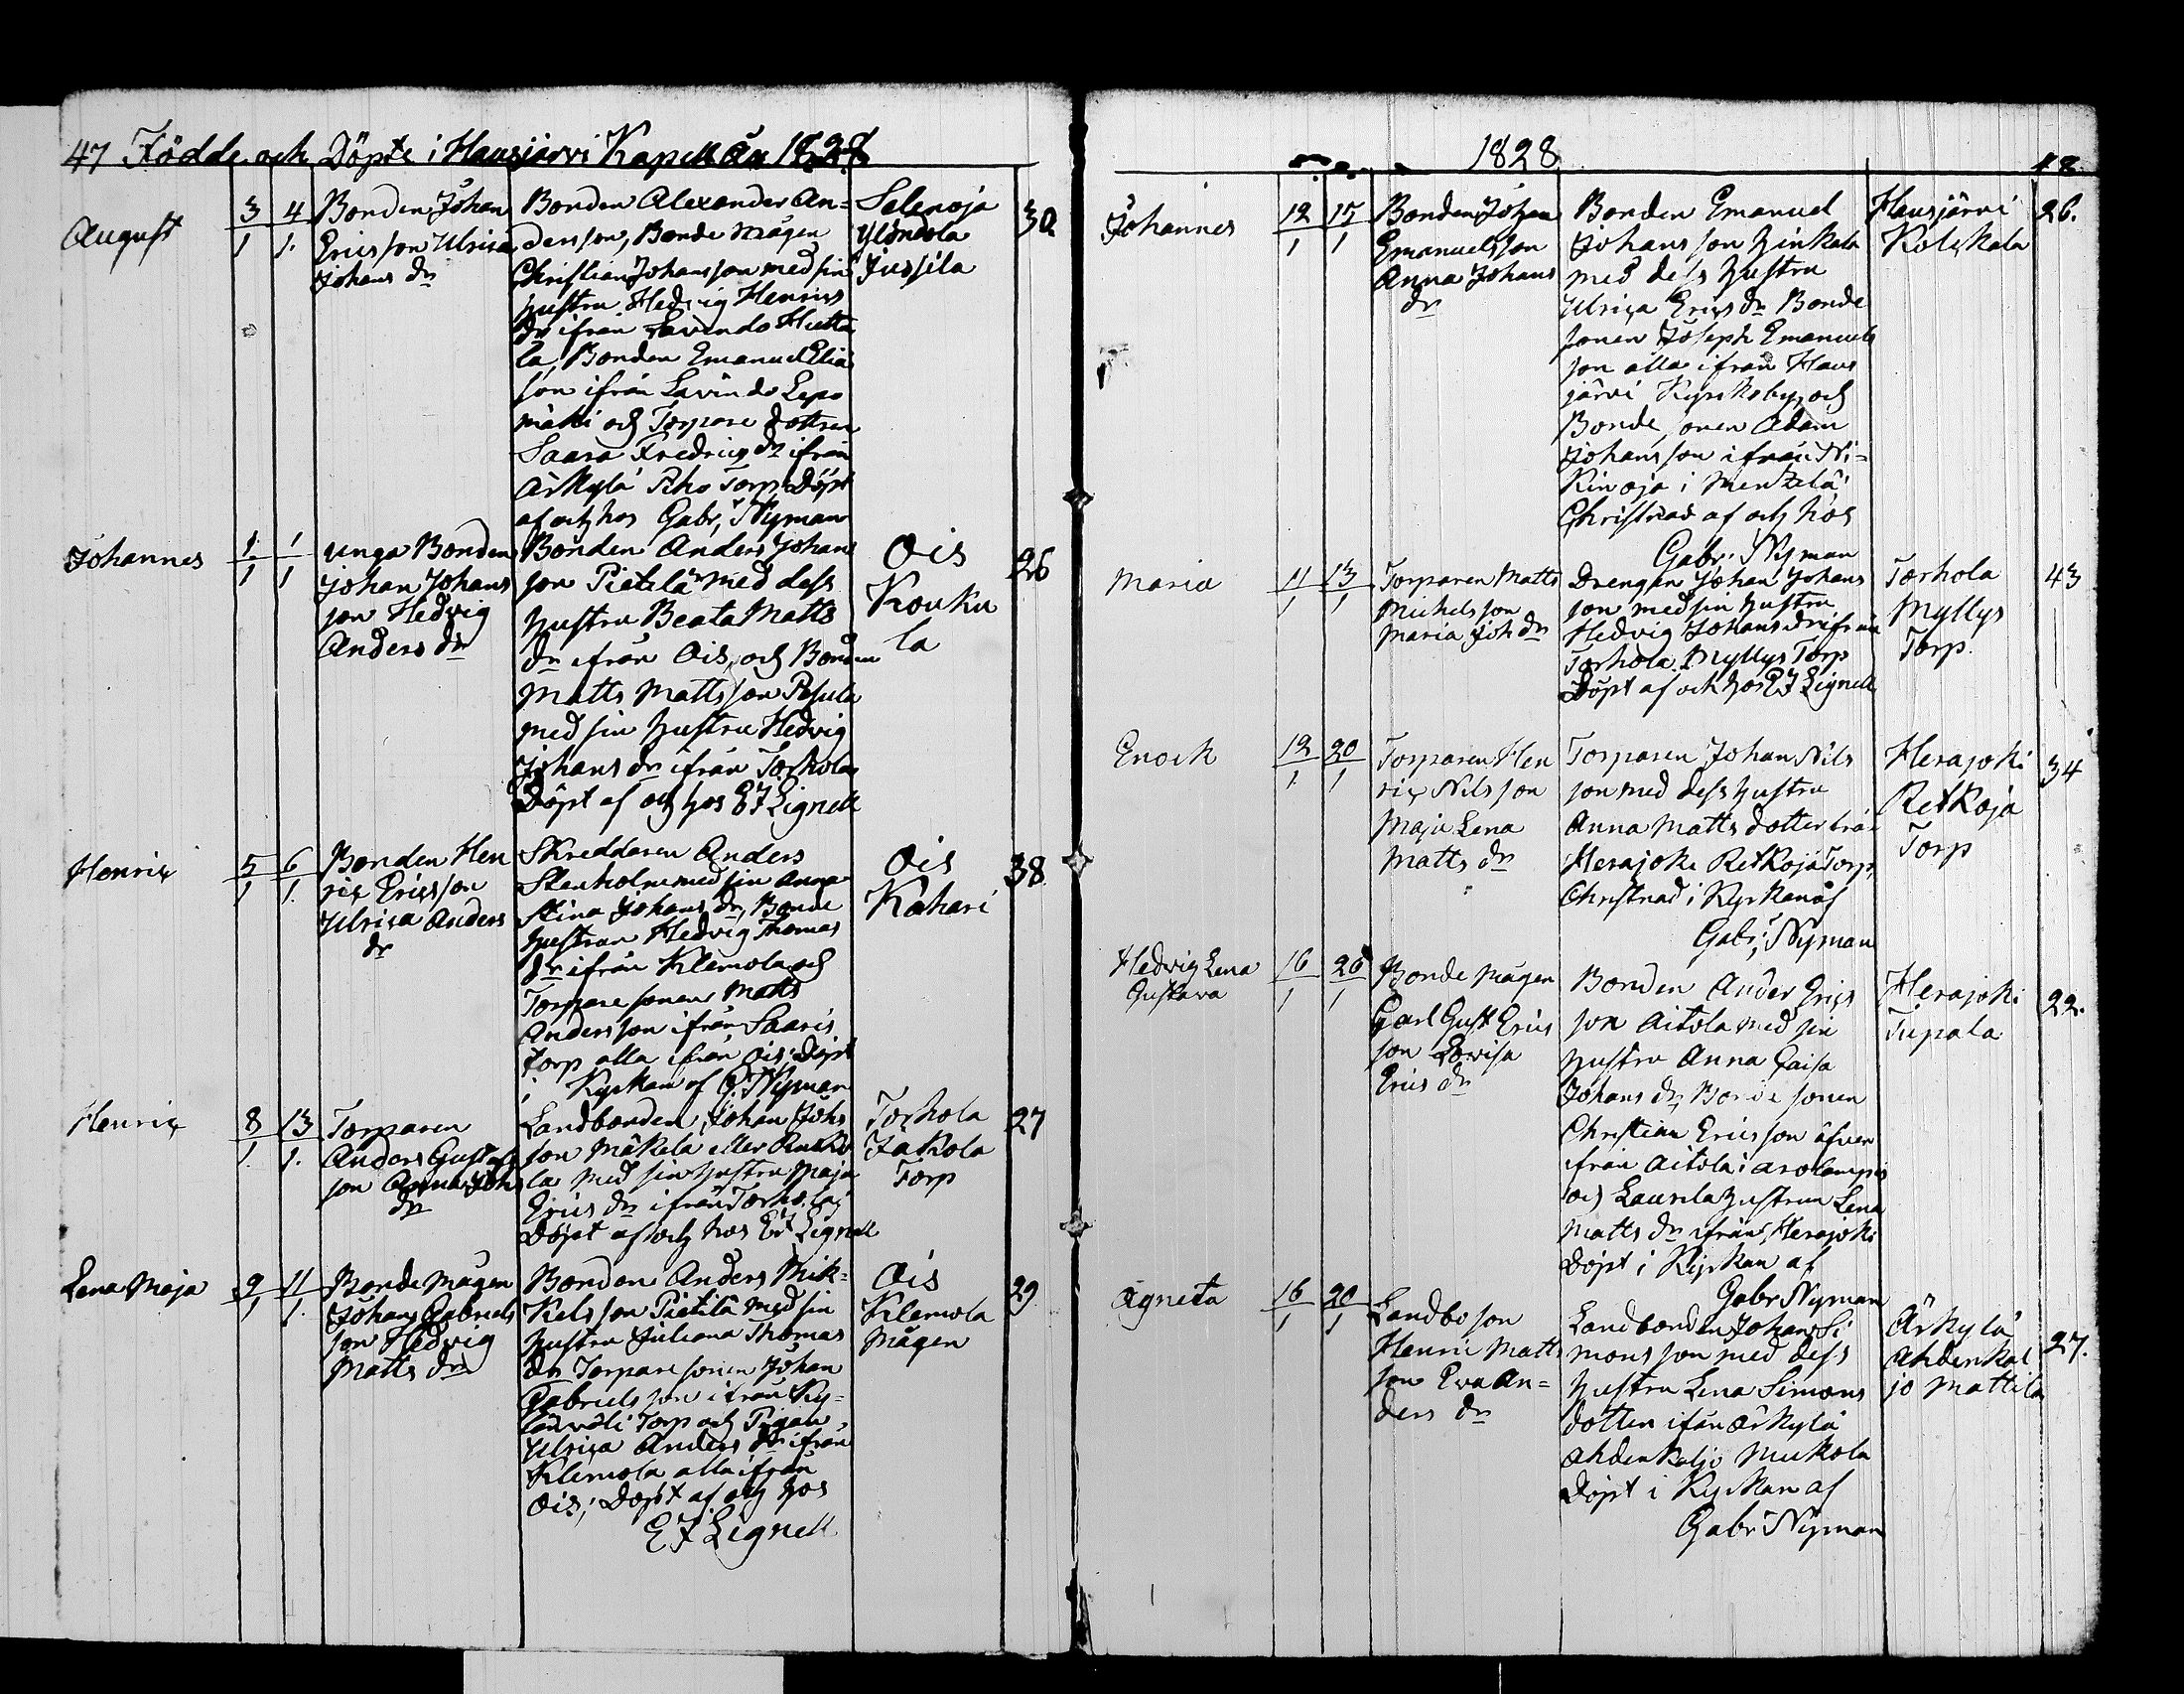 47 Födde och Döpte i Hausjärvi Kapell År 1828
August 3/1 4/1. Bonden Johan
Ericsson Ulrica
Johans dr
Bonden Alexander An=
dersson, Bonde mågen
Christian Johansson med sin
hustru Hedvig Henrics
dr ifrån Lavindo Hutta
la, Bonden Emanuel Elia
son ifrån Lavindo Lepo
mäki och Torpare dottren
Saara Fredrics dr ifrån
Ärkylä Piho Torp Döpt
af och hos Gabr, Nyman
Selenoja
Ylöndola
Jussila
30
Johannes 1/1 1/1 unga Bonden
Johan Johans
son Hedvig
Anders dr
Bonden Anders Johans
son Pietilä med dess
hustru Beata Matts
dr ifrån Ois, och Bonden
Matts Mattsson Pesula
med sin hustru Hedvig
Johans dr ifrån Torhola
Döpt af och hos EJ Lignell
Ois
Kouku
la
26
Henric 5/1 6/1. Bonden Hen
ric Ericsson
Ulrica Anders
dr
Skreddaren Anders
Stenholm med sin Anna
Stina Johans dr, Bonde
hustrun Hedvig Thomas
dr ifrån Klemola och
Torpare sonen Matts
Andersson ifrån Saaris
torp alla ifrån Ois; Döpt
i Kyrkan af G. Nyman
Ois
Kahari
38
Henric 8/1. 13/1. Torparen
Anders Gustafs
son Anna Johs
dr
Landbonden Johan Johs
son Mäkelä eller
la med sin hustru Maja
Erics dr ifrån Torhola;
Döpt af och hos EJ Lignell
Torhola
Jakola
Torp
27
Lena Maja 9/1 11/1. Bonde Mågen
Johan Gabriels
son Hedvig
Matts dr
Bonden Anders Mik=
kelsson Pietilä med sin
hustru Juliana Thomas
dr Torpare sonen Johan
Gabrielsson ifrån Ky=
länväli Torp och Pigan
Ulrica Anders dr ifrån
Klemola alla ifrån
Ois; Döpt af och hos
EJ Lignell
Ois
Klemola
Mågen
29
1828
48.
Johannes 12/1 15/1 Bonden Johan
Emanuelsson
Anna Johans
dr
Bonden Emanuel
Johansson Hinkala
med dess hustru
Ulrica Erics dr Bonde
sonen Joseph Emanuels
son alla ifrån Haus
järvi Kyrkoby, och
Bonde sonen Adam
Johansson ifrån Ni=
kinoja i Mentzelä
Christnad af och hos
Gabr. Nyman
Hausjärvi
Kölskala
26.
Maria 11/1 13/1 Torparen Matts
Michelsson
Maria Joh dr
Drengen Johan Johans
son med sin hustru
Hedvig Johans dr ifrån
Torhola Myllys Torp
Döpt af och hos EJ Lignell
Torhola
Myllys
Torp.
43
Enoch 12/1. 20/1 Torparen Hen
ric Nilsson
Maja Lena
Matts dr
Torparen Johan Nils
son med dess hustru
Anna Matts dotter frå
Herajoki Retkoja Torp,
Christnad i Kyrkan af
Gabr. Nyman
Herajoki
Retkoja
Torp
34
Hedvig Lena
Gustava 16/1 26/1 Bonde mågen
Carl Gust Erics
son Lovisa
Erics dr
Bonden Ander Erics
son Aitola med sin
hustru Anna Caisa
Johans dr, Bonde sonen
Christian Ericsson äfven
ifrån Aitola i Arolampis
och Laurila hustrun Lena
Matts dr ifrån Herajoki
Döpt i Kyrkan af
Gabr Nyman
Herajoki
Tupala
22.
Agneta 16/1 20/1 Landboson
Henric Matts
son Eva An=
ders dr
Landbonden Johan Si
monsson med dess
hustru Lena Simons
dotter ifrån Ärkylä
Ahdenkaljo Mukola
Döpt i Kyrkan af
Gabr Nyman
Ärkylä
Ahdenkal
jo Mattila
27.